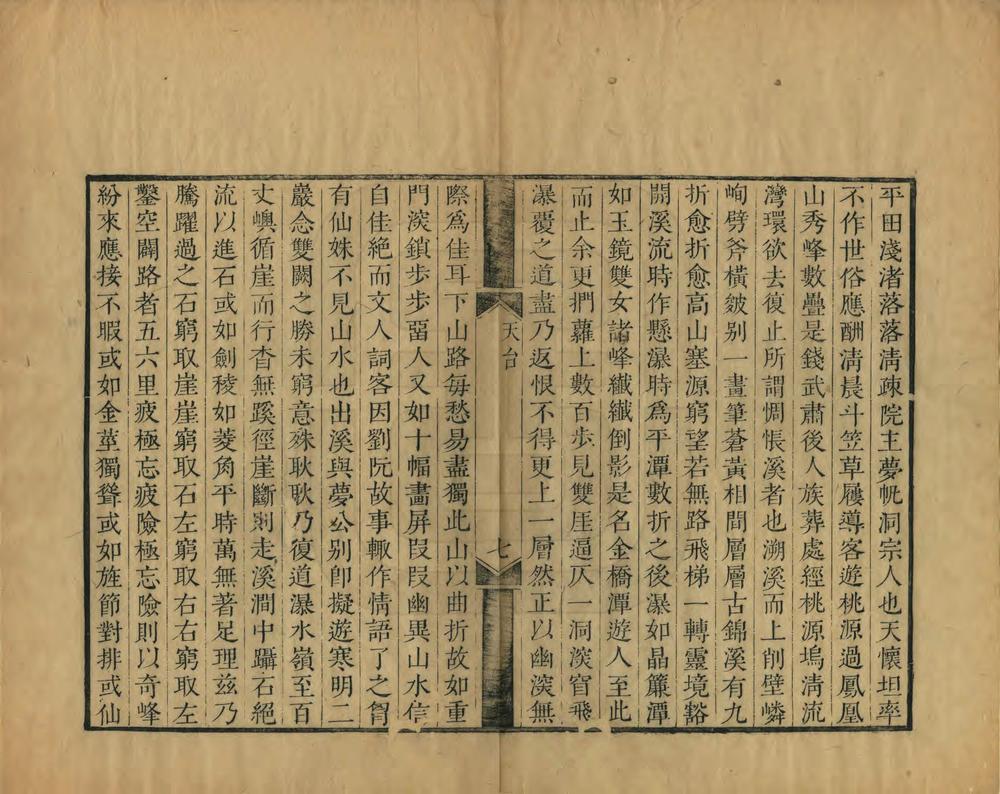 平田淺渚落落淸疎院主夢帆洞宗人也天懷坦率
不作世俗應酬淸晨斗笠草屨導客遊桃源過鳳凰
山秀峰數疊是錢武肅後人族葬處經桃源塢淸流
灣環欲去復止所謂惆悵溪者也溯溪而上削壁嶙
峋劈斧橫皴别一畫筆蒼黃相間層層古錦溪有九
折愈折愈高山塞源窮望若無路飛梯一轉靈境豁
開溪流時作懸瀑時爲平潭數折之後瀑如晶簾潭
如玉鏡雙女諸峰纖纖倒影是名金橋潭遊人至此
而止余更捫蘿上數百步見雙厓逼仄一洞深窅飛
瀑覆之道盡乃返恨不得更上一層然正以幽深無
天台
七
際爲佳耳下山路每愁易盡獨此山以曲折故如重
門深鎖步步畱人又如十幅畵屏段段幽異山水信
自佳絶而文人詞客因劉阮故事輙作情語了之胷
有仙姝不見山水也出溪與夢公别卽擬遊寒明二
巖念雙闕之勝未窮意殊耿耿乃復道瀑水嶺至百
丈嶴循崖而行杳無蹊徑崖斷則走溪澗中躡石絕
流以進石或如劍稜如菱角平時萬無著足理茲乃
騰躍過之石窮取崖崖窮取石左窮取右右窮取左
鑿空闢路者五六里疲極忘疲險極忘險則以奇峰
紛來應接不暇或如金莖獨聳或如旌節對排或仙